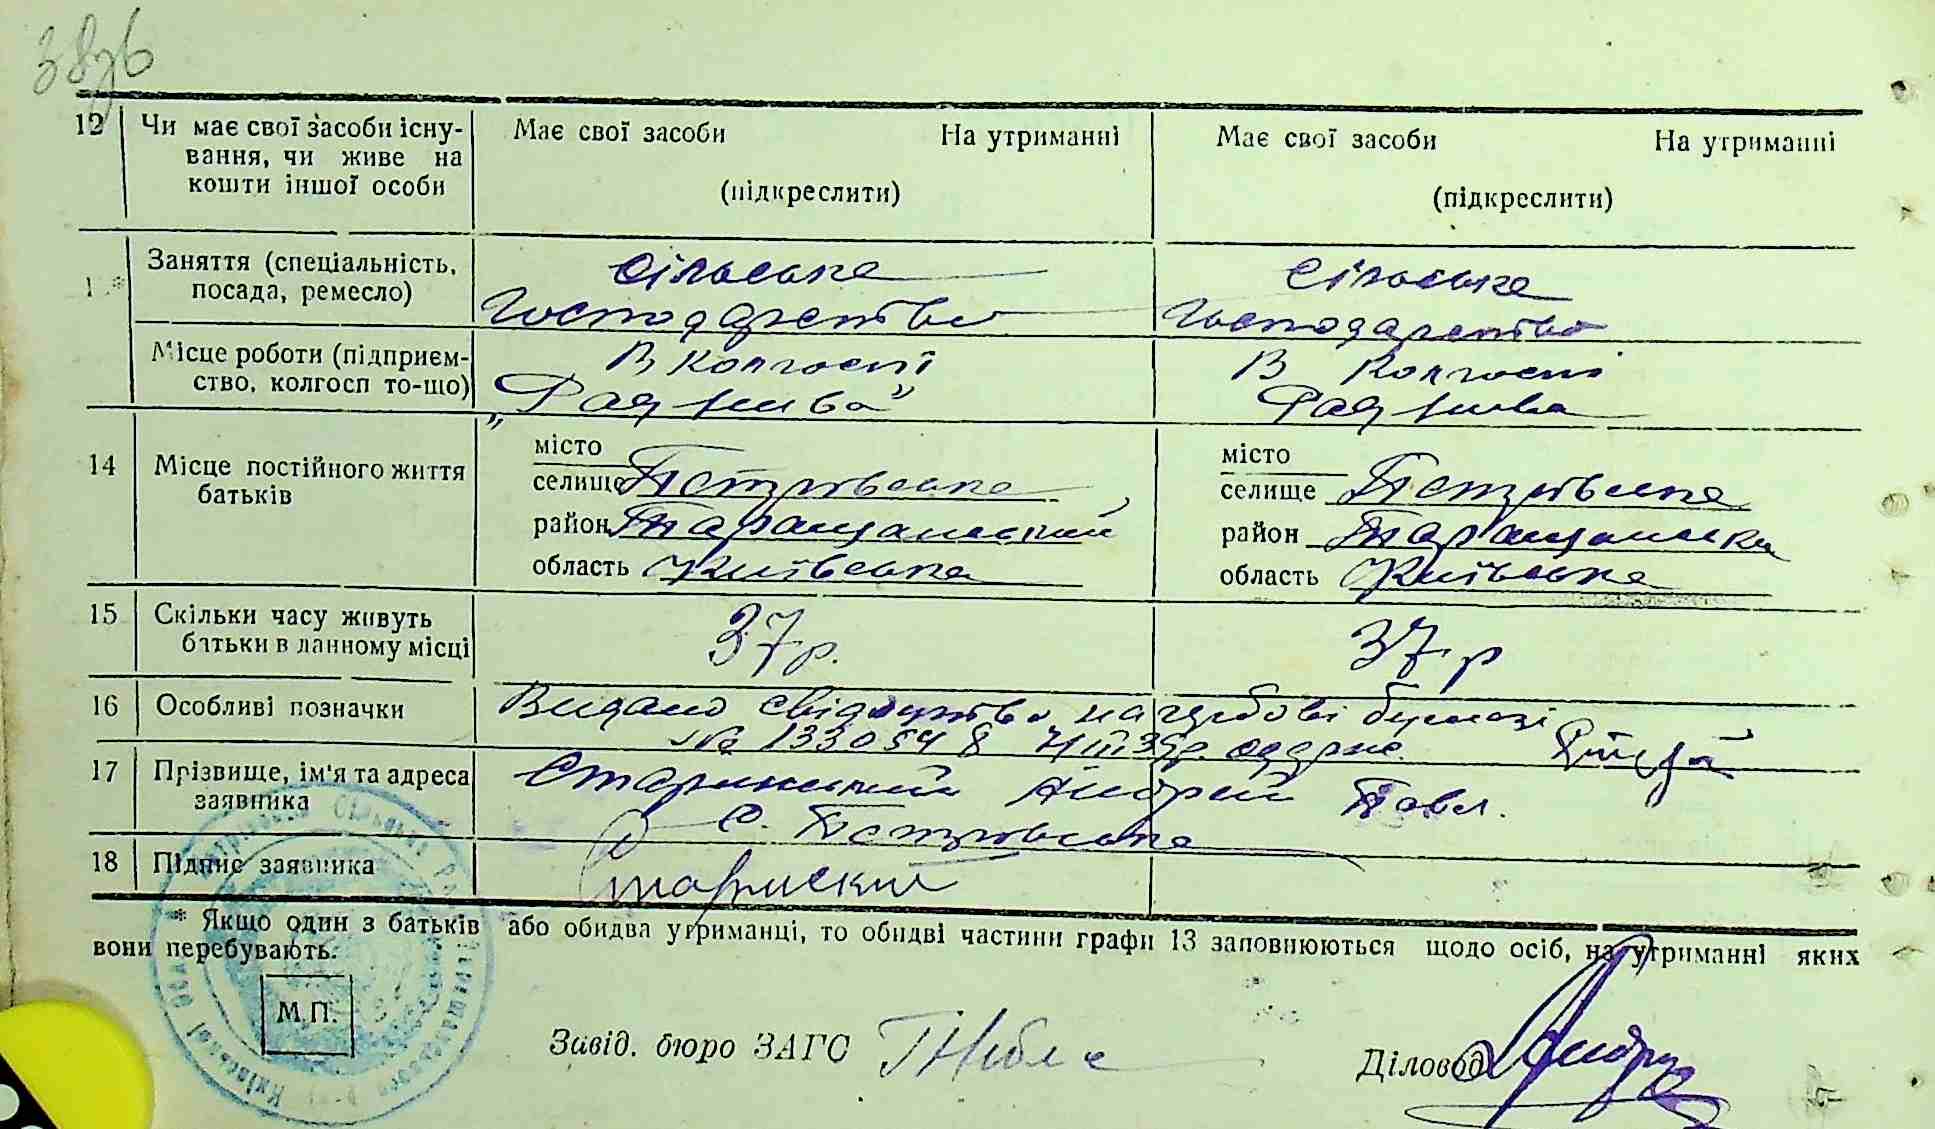 12 Чи має свої засоби існу-
вання, чи живе на
кошти іншої особи
Має свої засоби На утриманні
(підкреслити)
Має свої засоби На утриманні
(підкреслити)
Заняття (спеціальність,
посада, ремесло)
Сільське
Господарство
Сільське
Господарство
Місце роботи (підприєм-
ство, колгосп то-що)
В колгоспі
"Рад нива"
В Колгоспі
Рад нива
14 Місце постійного життя
батьків
місто
селище Петрівське
район Таращанський
область Київська
місто
селище Петрівське
район Таращанськи
область Київська
15 Скільки часу живуть
батьки в данному місці
37 р.
37 р
16 Особливі позначки
Видано свідоцтво на гербові бумазі
№ 133054
17 Прізвище, ім'я та адреса
заявника
Старинський Андрій Павл.
с. Петрівське
18 Підпис заявника
* Якщо один з батьків або обидва утриманці, то обидві частини графи 13 заповнюються щодо осіб, на утриманні яких
вони перебувають.
М.П.
Завід. бюро ЗАГС
Діловод